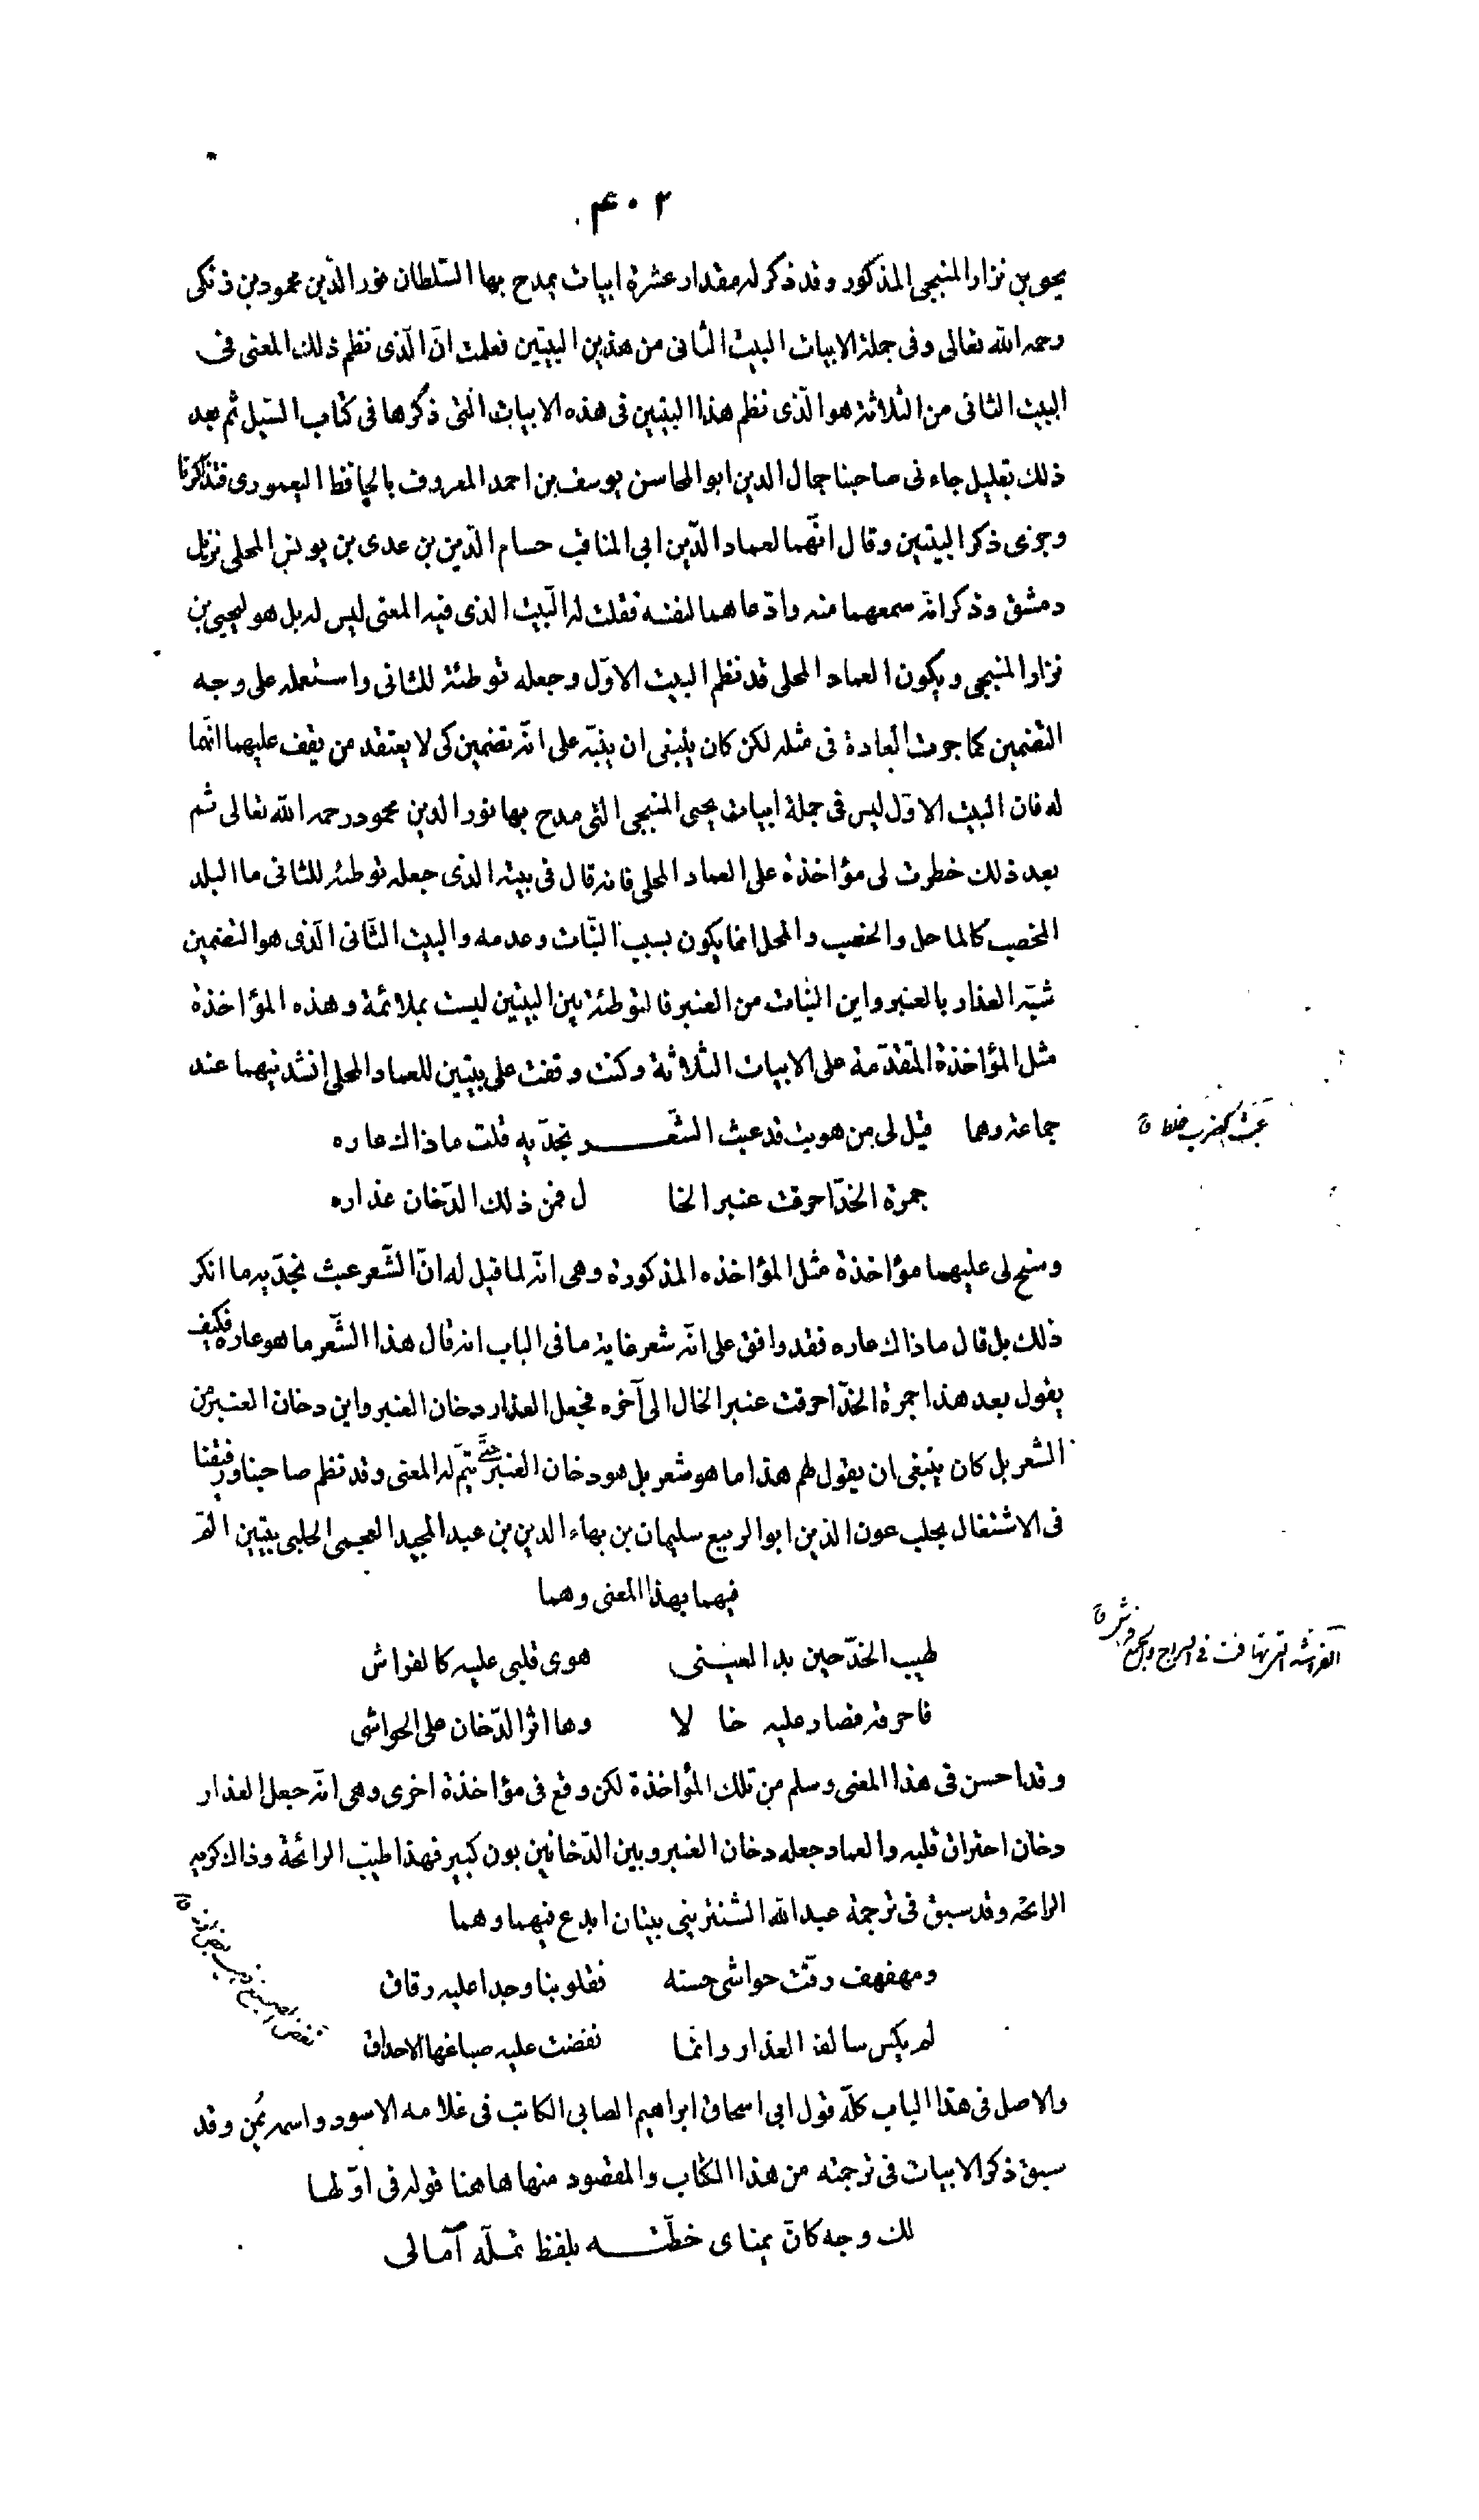 ۴۰۲
يحيى بن نزار المنبجى المذكور وقد ذكر له مقدار عشرة ابيات يمدح بها السّلطان نور الدّين محمود بن زنكى
رحمه الله تعالى وفى جملة الابيات البيت الثانى من هذين البيتين فعلمت انّ الّذى نظم ذلك المعنى فى
البيت الثانى من الثلاثة هو الّذى نظم هذا البيتين فى هذه الابيات الّتى ذكرها فى كتاب السّيل ثم بعد
ذلك بقليل جاءنى صاحبنا جمال الدين ابو المحاسن يوسف بن احمد المعروف بالحافظ اليعمورى فتذاكرنا
وجرى ذكر البيتين وقال انّهما لعماد الدّين ابى المناقب حسام الدّين بن عدى بن يونس المحلى نزيل
دمشق وذكر انّه سمعهما منه وادّعاهما لنفسه فقلت له البّيت الذى فيه المعنى ليس له بل هو ليحيى بن
نزار المنبجى ويكون العماد المحلى قد نظم البيت الاوّل وجعله توطئة للثانى واستعمله على وجه
التضمين كما جرت العادة فى مثله لكن كان ينبغى ان ينبّه على انّه تضمين كى لا يعتقد من يقف عليهما انّهما
له فان البيت الاوّل ليس فى جملة ابيات يحيى المنبجى التى مدح بها نور الدين محمود رحمه الله تعالى ثم
بعد ذلك خطرت لى مؤاخذة على العماد المحلى فانه قال فى بيته الذى جعله توطئة للثانى ما البلد
المخصب كالماحل والخصب والمحل انما يكون بسبب النّبات وعدمه والبيت الثّانى الّذى هو التضمين
شبّه العذار بالعنبر واين النبات من العنبر فالتوطئة بين البيتين ليست بملائمة وهذه المؤاخذة
مثل المؤاخذة المتقدّمة على الابيات الثلاثة وكنت وقفت على بيتين للعماد المحلى انشدنيهما عند
جماعة وهما قيل لى من هويت قد عبث الشّعـــر بخدّيه قلت ما ذاك عاره
عبث كضرب خلط ق
جمرة الخدّ احرقت عنبر الخا ل فمن ذلك الدّخان عذاره
وسنح لى عليهما مؤاخذة مثل المؤاخذه المذكورة وهى انّه لما قيل له انّ الشّعر عبث بخدّيه ما انكر
ذلك بل قال ما ذاك عاره فقد وافق على انّه شعر غاية ما فى الباب انه قال هذا الشّعر ما هو عاره فكيف
يقول بعد هذا جمرة الخدّ احرقت عنبر الخال الى آخره فجعل العذار دخان العنبر واين دخان العنبر من
الشعر بل كان ينبغى ان يقول لهم هذا ما هو شعر بل هو دخان العنبر حتّى يتمّ له المعنى وقد نظم صاحبنا ورفيقنا
فى الاشتغال بحلب عون الدّين ابو الربيع سليمان بن بهاء الدين بن عبد المجيد العجمى الحلبى بيتين المّ
فيهما بهذا المعنى وهما
لهيب الخدّ حين بدا لعينى هوى قلبى عليه كالفراش
الفراشة التى تهافت فى السراج والجمع فراش ق
فاحرقه فصار عليه خا لا وها اثر الدّخان على الحواشى
وقد احسن فى هذا المعنى وسلم من تلك المؤاخذة لكن وقع فى مؤاخذة اخرى وهى انّه جعل العذار
دخان احتراق قلبه والعماد جعله دخان العنبر وبين الدّخانين بون كبير فهذا طيّب الرائحة وذاك كريه
الرائحه وقد سبق فى ترجمة عبد الله الشنترينى بيتان ابدع فيهما وهما
ومهفهف رقّت حواشى حسنه فقلوبنا وجدا عليه رقاق
لم يكس سالف العذار وانّما نفضت عليه صباغها الاحداق
والاصل فى هذا الباب كلّه قول ابى اسحاق ابراهيم الصابى الكاتب فى غلامه الاسود واسمه يُمن وقد
سبق ذكر الابيات فى ترجمته من هذا الكتاب والمقصود منها هاهنا قوله فى اوّلها
لك وجه كانّ يمناى خطّتـــه بلفظ تملّه آمالى